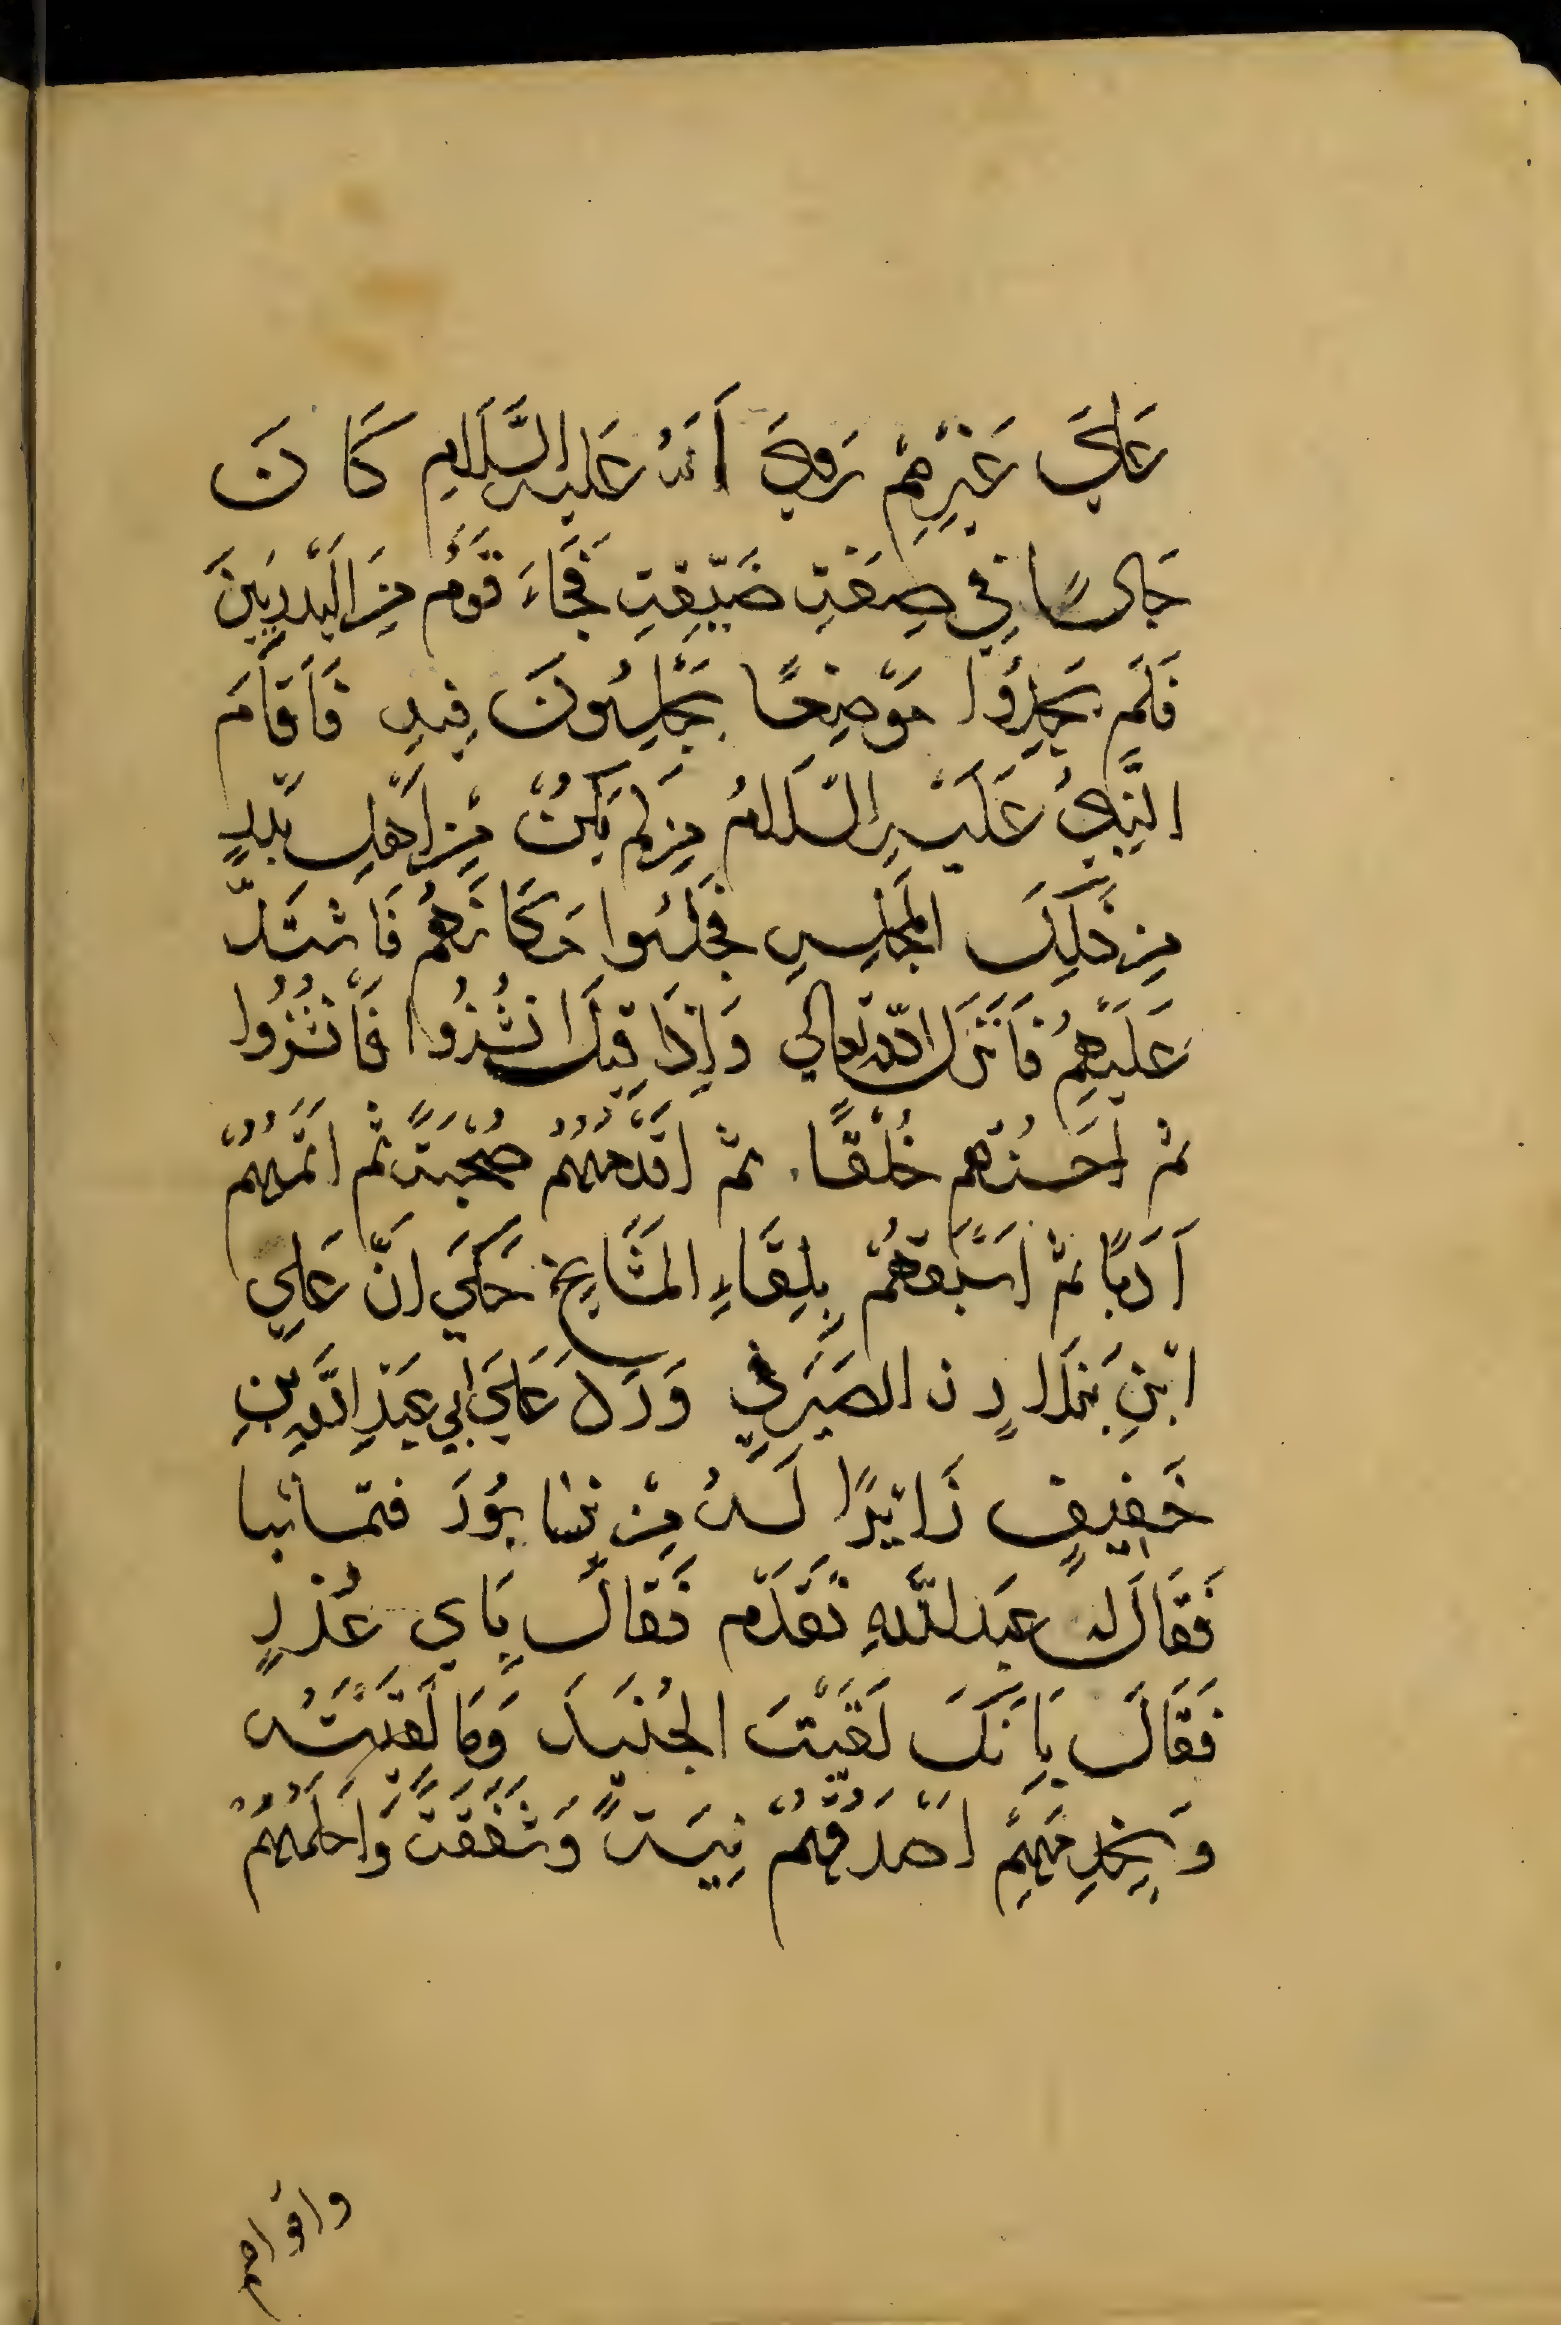 عَلَي غَيْرِهِمْ رَوِيَ أَنَهُ عَليه السَّلَام كَانَ
جَالِسًا فِي صِفَتِ ضَيّقتِ فَجَاءَ قَوْمٌ مِنَ البَدْرِيينَ
فَلَم يَجِدُوا مَوْضِعًا يَجْلِسُونَ فِيهِ فَأَقَامَ
النَّبِيُّ عَلَيْهِ السَّلَامُ مِن لم يَكُنْ مِنْ اَهْلِ بَدرٍ
مِن ذَلِكَ المَجْلِسِ فَجَلَسُوا مَكَانَهُم فَاشْتَدَّ
عَلَيْهِمُ فَاَنْزَلَ اللّه تعالي وَاِذَا قِيلَ انْشُزُوا فَانْشُزُوا
ثم اَحسَنُهم خُلْقًا ثم اَقْدَمُهُمْ صُحْبَتًا ثم اَتَمُّهُمْ
أَدَبًا ثم اَسْبَقهُمْ بِلِقَاءِ المَشَايِخ حَكَي انَّ عَلِي
ابْنِ بَنْدَارِ ن الصَيْرَفِي وَرَدَ عَلَي اَبِي عَبْدِ اللَّهِ بْنِ
خَفِيفٍ زَائِرًا لَهُ مِنْ نيْسَابُورَ فتماشيا
فَقَالَ له عَبدُ اللَّهِ تَقَدَّم فَقَالَ بِاي عُذْرٍ
فَقَالَ بِاَنَكَ لَقَيْتَ الجُنَيدَ وَمَا لَقَيْتُهُ
وَبِخِدِمَتِهِمْ اَصْدَقُهُمْ نِيَتً وَشَفَقَتً وَاَحلَمُهُمْ
واقواهم